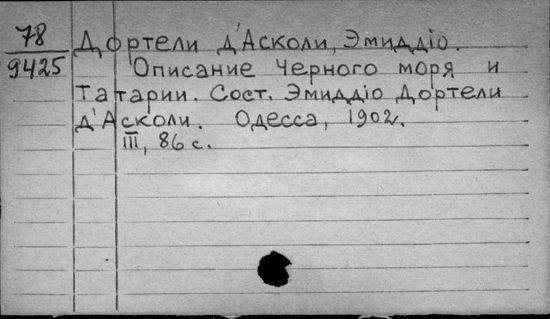 78
9425
Дортели д'Асколи, Эмиддіо.
Описание Черного моря и
Татарии. Сост. Эмиддіо Дортели
д'Асколи. Одесса, 1902.
III, 86 с.